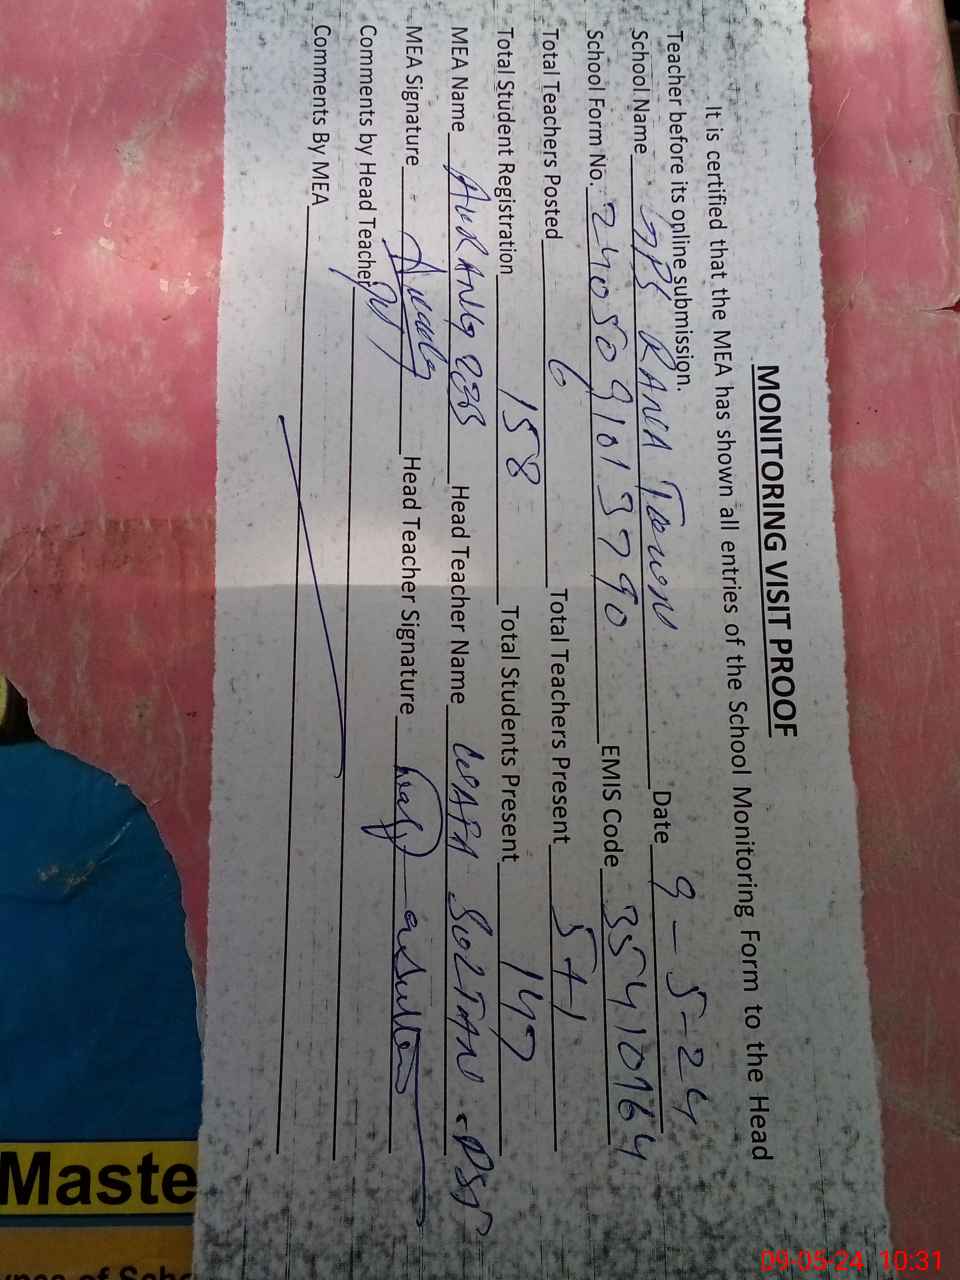 MONITORING VISIT PROOF
It is certified that the MEA has shown all entries of the School Monitoring Form to the Head
Teacher before its online submission.
School Name GPS RANA TOWN Date 9-5-24
School Form No. 2405091013790 EMIS Code 35410164
Total Teachers Posted 6 Total Teachers Present 5+1
Total Student Registration 158 Total Students Present 147
MEA Name AURANGZEB Head Teacher Name WAFA SULTAN
MEA Signature Head Teacher Signature
Comments by Head Teacher
Comments By MEA
Maste
09-05-24 10:31